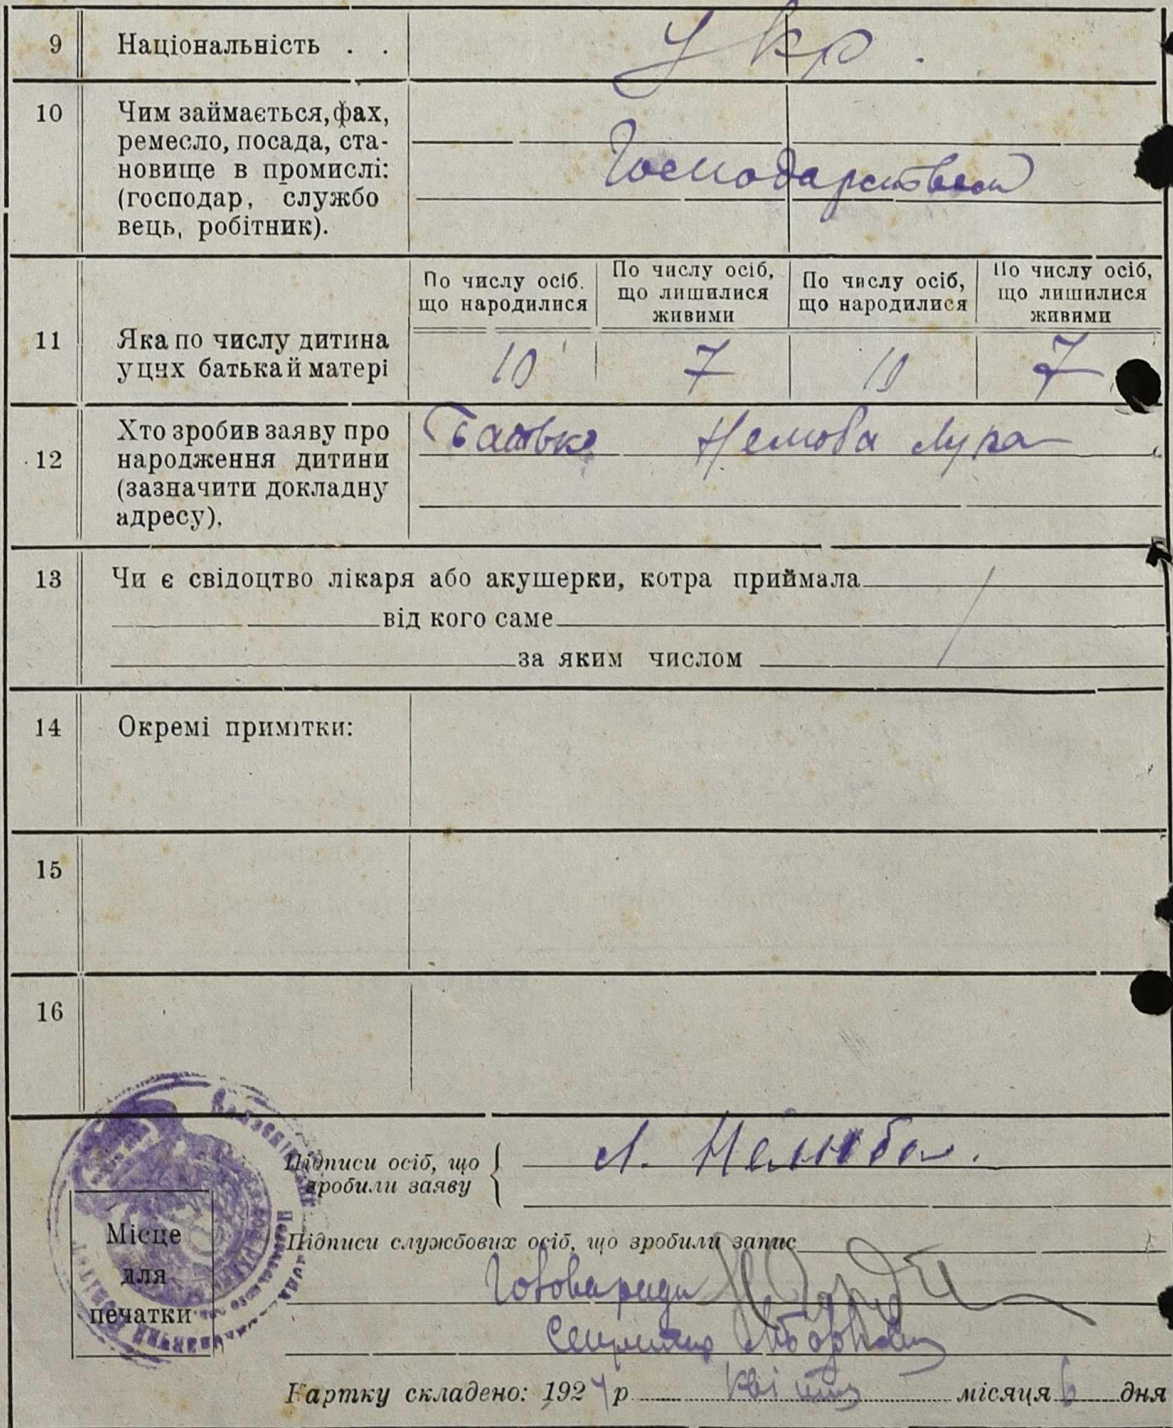 9 Національність . . Укр.
10 Чим займається, фах,
ремесло, посада, ста-
новище в промислі:
(господар, службо
вець, робітник).
Господарством
По числу осіб. що народилися
По числу осіб, що лишилися живими
По числу осіб, що народилися
По числу осіб, що лишилися живими
11 Яка по числу дитина
у цих батька й матері
10 7 10 7
12 Хто зробив заяву про
народження дитини
(зазначити докладну
адресу).
Батько Лука
13 Чи є свідоцтво лікаря або акушерки, котра приймала
від кого саме
за яким числом
14 Окремі примітки:
15
16
Підписи осіб, що
зробили заяву
Л.
Місце
для
печатки
Підписи службових осіб, що зробили запис
Голова ради
Картку складено: 192 р квітня місяця 6 дня